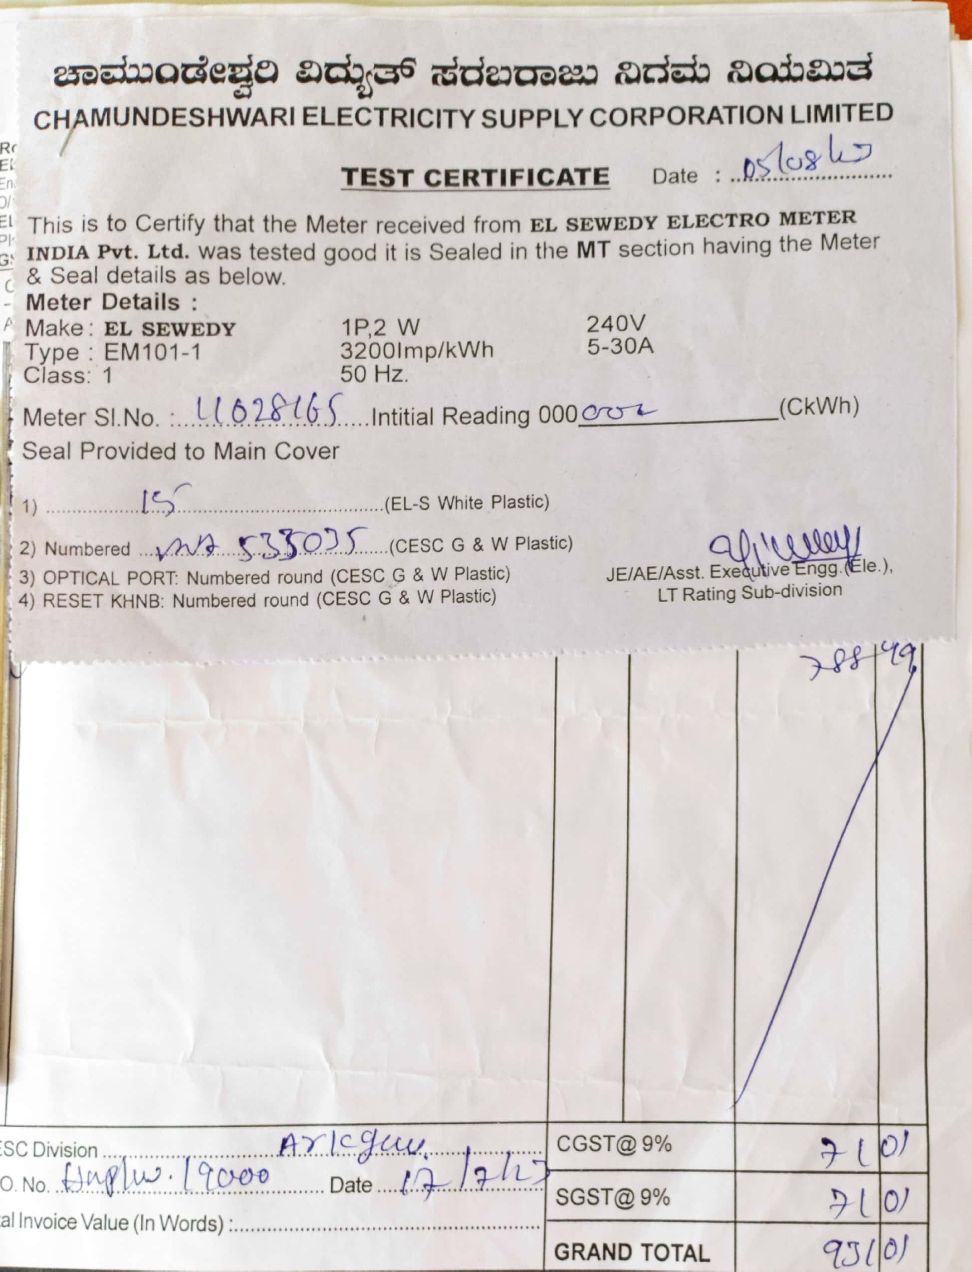 ಚಾಮುಂಡೇಶ್ವರಿ ವಿದ್ಯುತ್ ಸರಬರಾಜು ನಿಗಮ ನಿಯಮಿತ
CHAMUNDESHWARI ELECTRICITY SUPPLY CORPORATION LIMITED
TEST CERTIFICATE Date : 05/08/23
This is to Certify that the Meter received from EL SEWEDY ELECTRO METER
INDIA Pvt. Ltd. was tested good it is Sealed in the MT section having the Meter
& Seal details as below.
Meter Details :
Make : EL SEWEDY 1P,2 W 240V
Type : EM101-1 3200Imp/kWh 5-30A
Class: 1 50 Hz.
Meter Sl.No. : 11028165 Intitial Reading 000002 (CkWh)
Seal Provided to Main Cover
1) 15 (EL-S White Plastic)
2) Numbered 533035 (CESC G & W Plastic)
3) OPTICAL PORT: Numbered round (CESC G & W Plastic)
4) RESET KHNB: Numbered round (CESC G & W Plastic)
JE/AE/Asst. Executive Engg.(Ele.),
LT Rating Sub-division
788 49
ESC Division CGST@ 9% 71 01
O. No. 19000 Date 17/7/23 SGST@ 9% 71 01
al Invoice Value (In Words) :
GRAND TOTAL 931 01